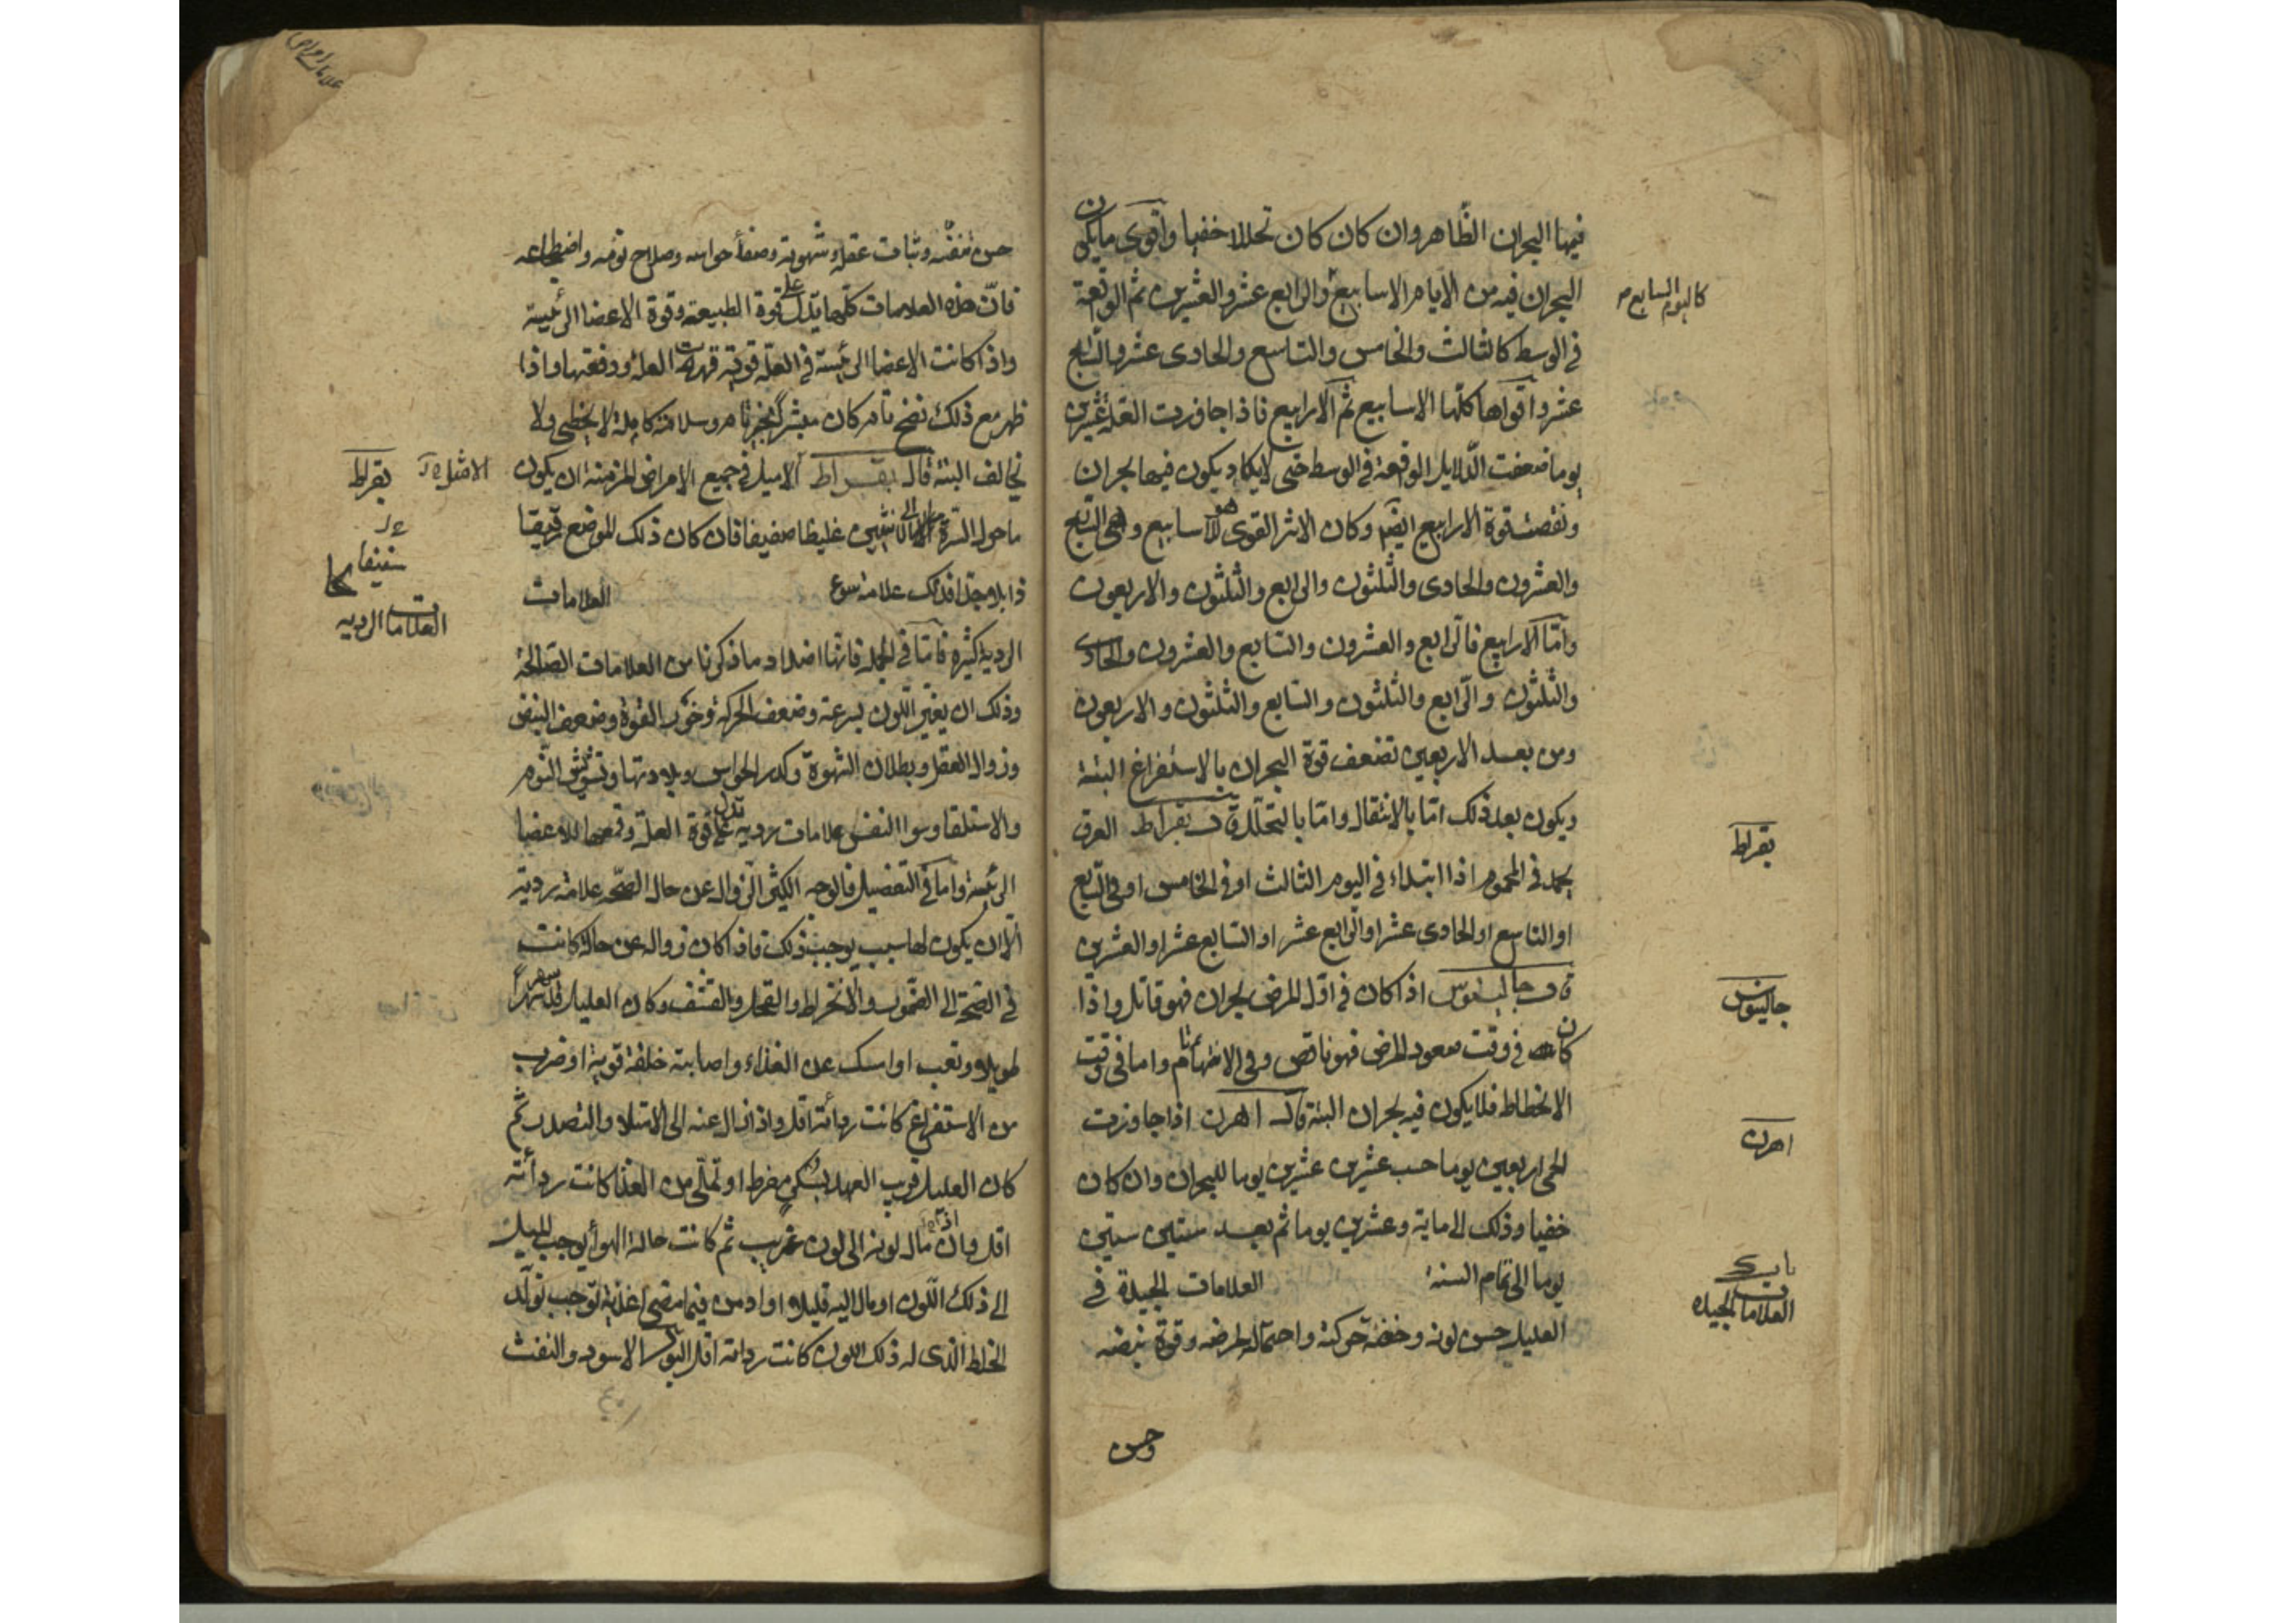 فيها البحران الظاهر وان كان كان تحللا خفيا واقوى ما يكون
البحران فيه من الايام الاسابيع والرابع عشر والعشرين ثم الوقعة
كاليوم السابع م
في الوسط كالثالث والخامس والتاسع والحادى عشر والسابع
عشر واقواها كلها الاسابيع ثم الارابيع فاذا جاوزت العلة عشرين
يوما ضعفت الدلايل الوقعة في الوسط حتى لايكاد يكون فيها بحران
ونقصت قوة الارابيع ايضم وكان الاثر القوى للاسابيع وهى السابع
والعشرون والحادى والثلثون والرابع والثلثون والاربعون
وامّا الارابيع فالرابع والعشرون والسابع والعشرون والحادى
والثلثون والرابع والثلثون والسابع والثلثون والاربعون
ومن بعد الاربعين تضعف قوة البحران بالاستفراغ البتة
ويكون بعد ذلك امّا بالانتقال وامّا بالتحلل بقراط العرق
بقراط
يحمد في المحموم اذا ابتداء في اليوم الثالث او في الخامس او في السابع
او التاسع او الحادى عشر او الرابع عشر او السابع عشر او العشرين
جالينوس اذا كان في اول المرض بحران فهو قاتل واذا
جالينوس
كان في وقت صعود المرض فهو ناقص وفي الانتهاء تام واما في وقت
الانحطاط فلا يكون فيه بحران البتة قال اهرن اذا جاوزت
اهرن
الحمى اربعين يوما حسب عشرين عشرين يوما للبحران وان كان
خفيا وذلك الى ماية وعشرين يوما ثم بعد ستين ستين
يوما الى تمام السنة العلامات الجيدة في
باب
العلامات الجيده
العليل حسن لونه وخفة حركته واحتماله لمرضه وقوة نبضه
وحسن
علامات امراض
حسن تنفسه وثبات عقله وشهوته وصفاء حواسه وصلاح نومه واضطجاعه
فانّ هذه العلامات كلها تدل على قوة الطبيعة وقوة الاعضا الرئيسة
واذا كانت الاعضا الرئيسة في العلة قوية قهرت العلة ودفعتها واذا
ظهر مع ذلك نضج تام كان مبشرا بخير تام وسلامة كاملة لا يخطى ولا
يخالف البتة قال بقراط الاميل في جميع الامراض المزمنة ان يكون
الامثل
بقراط
ما حول السرة الى الانثيين غليظا صفيفا فان كان ذلك الموضع رقيقا
ذابلا جدا فذلك علامة سوء العلامات
العلامات الرديه
الردية كثيرة فامّا في الجملة فانها اضداد ما ذكرنا من العلامات الصالحة
وذلك ان يغير اللون بسرعة وضعف الحركة وخور القوة وضعف النبض
وزوال العقل وبطلان الشهوة وكدر الحواس وبلادتها وتشوش النوم
والاستلقا وسوا النفس علامات ردية تدل على قوة العلة وقهرها للاعضا
الرئيسة وامّا في التفصيل فالوجه الكثير الزوال عن حال الصحّة علامة ردية
الّا ان يكون لها سبب يوجب ذلك فاذا كان زواله عن حالة كانت
في الصحة الى الضمور والانخراط والقحل والقشف وكان العليل قد سهر سهرا
طويلا وتعب او امسك عن الغذاء واصابته خلفة قوية او ضرب
من الاستفراغ كانت رداءته اقل واذا زال عنه الى الامتلا والتصدر ثم
كان العليل قريب العهد بسكر مفرط او تملّى من الغذا كانت رداءته
اقل وان مال لونه الى لون غريب ثم كانت حالة الهوأ يوجب الميل
الى ذلك اللون او مال اليه قليلا او ادمن فيما مضى اغذية توجب تولّد
الخلط الذى له ذلك اللون كانت رداءته اقل البول الاسود والنفث